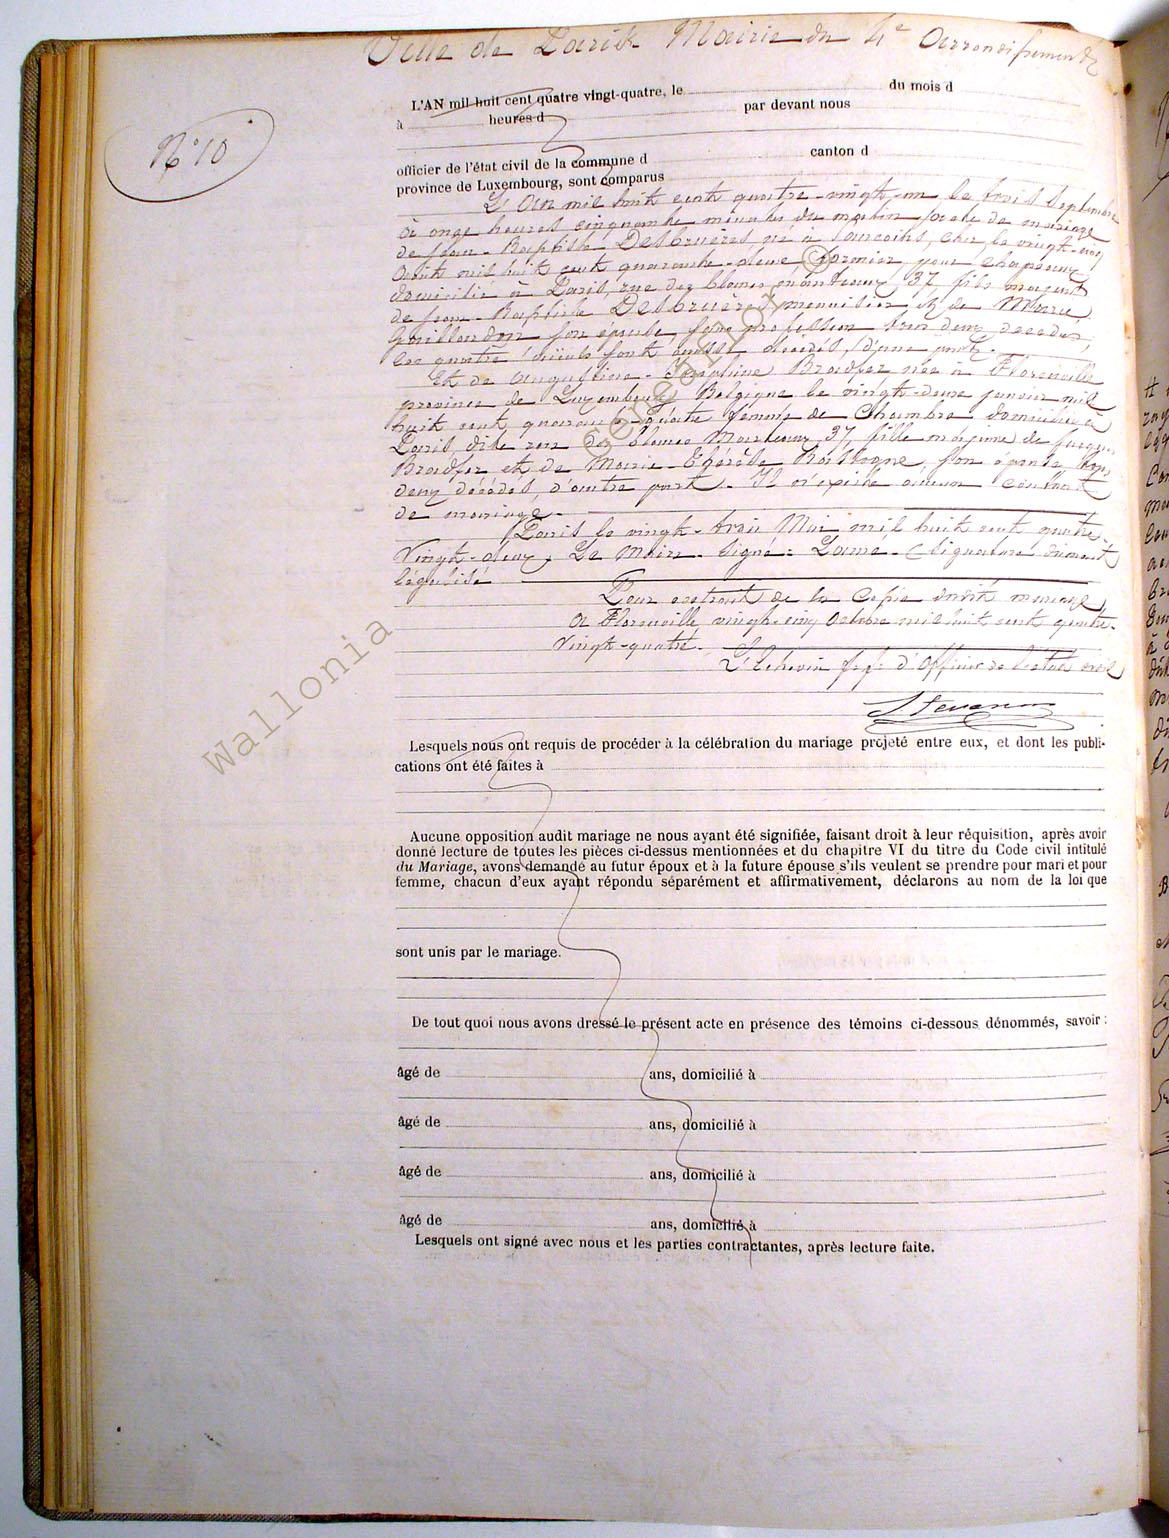 Ville de Paris Mairie du 4e Arrondissement
N° 10
L'AN mil huit cent quatre vingt-quatre, le du mois d
à heures d par devant nous
officier de l'état civil de la commune d canton d
province de Luxembourg, sont comparus
L'an mil huit cent quatre-vingt-un le trois Septembre
à onze heures cinquante minutes du matin Acte de mariage
de Jean-Baptiste Desbruères né à Cher le vingt-cinq
Août mil huit cent quarante-deux formier pour chapeaux
domicilié à Paris, rue des blancs manteaux 37 fils majeur
de Jean-Baptiste Desbruères menuisier et de Marie
son épouse sans profession tous deux décédés,
les quatre aïeuls sont aussi décédés, d'une part.
Et de Augustine-Joséphine Bradfer née à Florenville
province de Luxembourg Belgique le vingt-deux janvier mil
huit cent quarante-quatre femme de Chambre domiciliée à
Paris, dite rue des blancs Manteaux 37, fille majeure de Jacques
Bradfer et de Marie-Thérèse Bastogne, son épouse tous
deux décédés, d'autre part. Il n'existe aucun contrat
de mariage.
Paris le vingt-trois Mai mil huit cent quatre-
Vingt-deux. Le Maire. Signé: (signature dûment
légalisée
Pour extrait de la Copie dudit mariage
A Florenville vingt-cinq Octobre mil huit cent quatre-
Vingt-quatre.
L'Echevin f.f. d'Officier de l'état civil
Wallonia
©
Lesquels nous ont requis de procéder à la célébration du mariage projeté entre eux, et dont les publi-
cations ont été faites à
Aucune opposition audit mariage ne nous ayant été signifiée, faisant droit à leur réquisition, après avoir
donné lecture de toutes les pièces ci-dessus mentionnées et du chapitre VI du titre du Code civil intitulé
du Mariage, avons demandé au futur époux et à la future épouse s'ils veulent se prendre pour mari et pour
femme, chacun d'eux ayant répondu séparément et affirmativement, déclarons au nom de la loi que
sont unis par le mariage.
De tout quoi nous avons dressé le présent acte en présence des témoins ci-dessous dénommés, savoir :
âgé de ans, domicilié à
âgé de ans, domicilié à
âgé de ans, domicilié à
âgé de ans, domicilié à
Lesquels ont signé avec nous et les parties contractantes, après lecture faite.